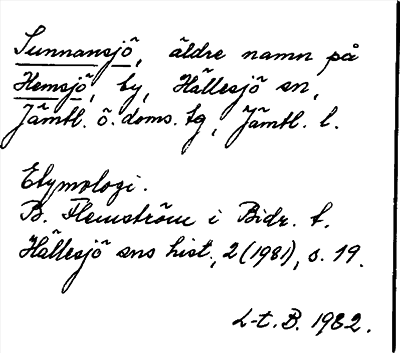 Sunnansjö, äldre namn på
Hemsjö, by, Hällesjö sn,
Jämtl. ö. doms. tg, Jämtl. l.
Etymologi.
B. Flemström i Bidr. t.
Hällesjö sns hist., 2 (1981), s. 19.
L-t. B. 1982.